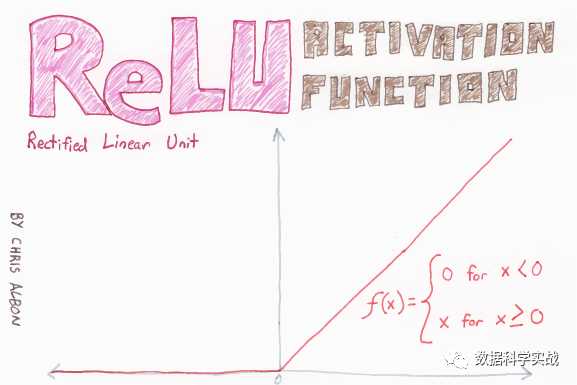 ReLU ACTIVATION
FUNCTION
Rectified Linear Unit
BY CHRIS ALBON
f(x) = { 0 for x < 0
x for x ≥ 0
0
数据科学实战